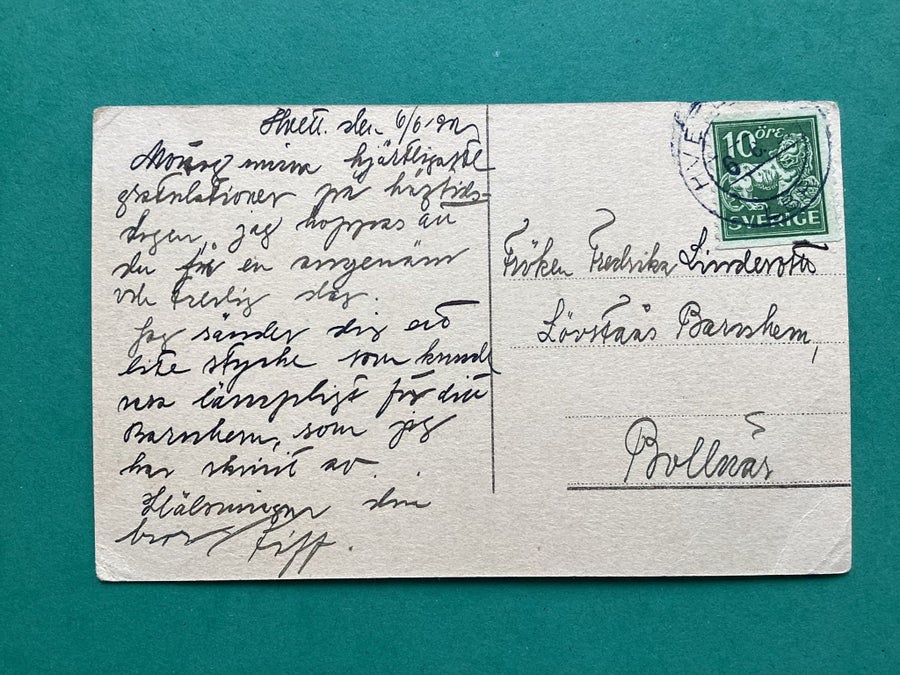 Hvett. den 6/6
Mottag mina hjärtligaste
gratulationer på högtids-
dagen, jag hoppas att
du får en angenäm
och trevlig dag.
Jag sänder dig ett
lite stycke som kunde
vara lämpligt för ditt
Barnhem, som jag
har skrivit av.
Hälsningar din
bror
10 ÖRE
SVERIGE
HVE
6
Fröken Fredrika
Lövstaås Barnhem,
Bollnäs